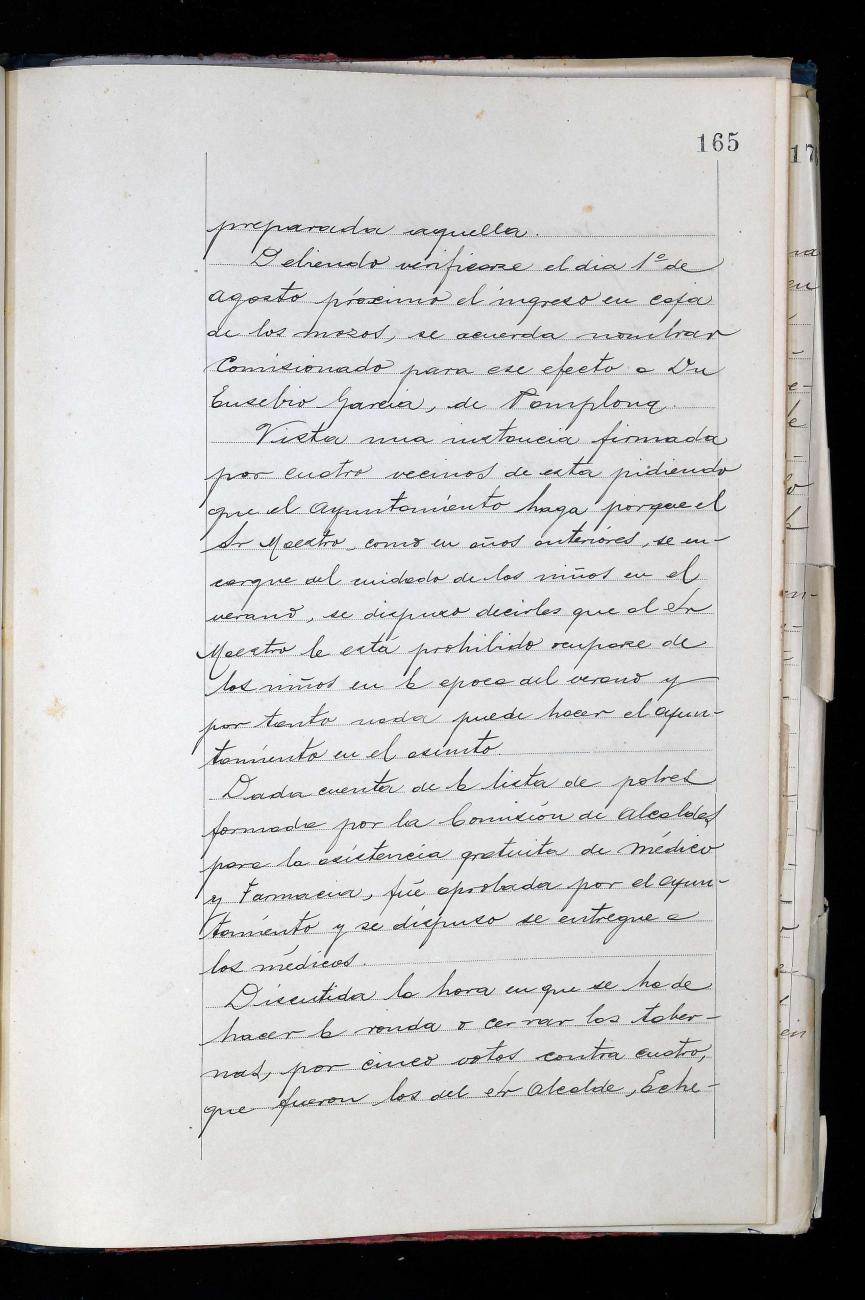 165
preparada aquella.
Debiendo verificarse el dia 1º de
agosto próximo el ingreso en caja
de los mozos, se acuerda nombrar
Comisionado para ese efecto a Dn
Eusebio Garcia, de Pamplona.
Vista una instancia firmada
por cuatro vecinos de esta pidiendo
que el Ayuntamiento haga porque el
Sr Maestro, como en años anteriores, se en-
cargue del cuidado de los niños en el
verano, se dispuso decirles que al Sr
Maestro le está prohibido ocuparse de
los niños en la epoca del verano y
por tanto nada puede hacer el ayun-
tamiento en el asunto.
Dada cuenta de la lista de pobres
formada por la Comisión de Alcaldes
para la asistencia gratuita de Médico
y Farmacia, fué aprobada por el ayun-
tamiento y se dispuso se entregue a
los médicos.
Discutida la hora en que se ha de
hacer la ronda o cerrar las taber-
nas, por cinco votos contra cuatro,
que fueron los del Sr Alcalde, Eche-